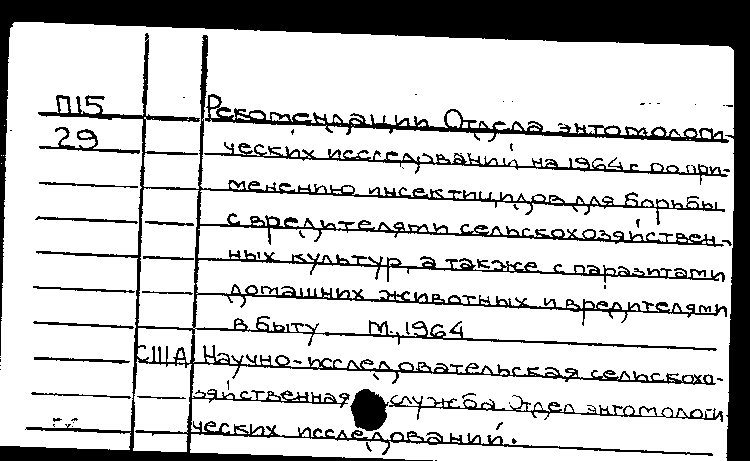 П15 Рекомендации Отдела энтомологи-
29 ческих исследований на 1964 г. по при-
менению инсектицидов для борьбы
с вредителями сельскохозяйствен-
ных культур, а также с паразитами
домашних животных и вредителями
в быту. М., 1964
США Научно-исследовательская сельскохо-
зяйственная служба Отдел энтомологи
ческих исследований.